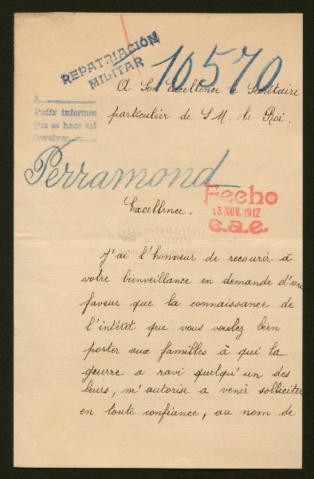 REPATRIACIÓN
MILITAR
10570
A Son Excellence le Secrétaire
particulier de S M. le Roi.
Pedir informes
que se hace así
Perramond
Fecho
13 NOV. 1917
e.a.e.
Excellence.
PATRIMONIO
NACIONAL
J'ai l'honneur de recourir à
votre bienveillance en demande d'une
faveur que la connaissance de
l'intérêt que vous voulez bien
porter aux familles à qui la
guerre a ravi quelqu'un des
leurs, m'autorise a venir solliciter
en toute confiance, au nom de